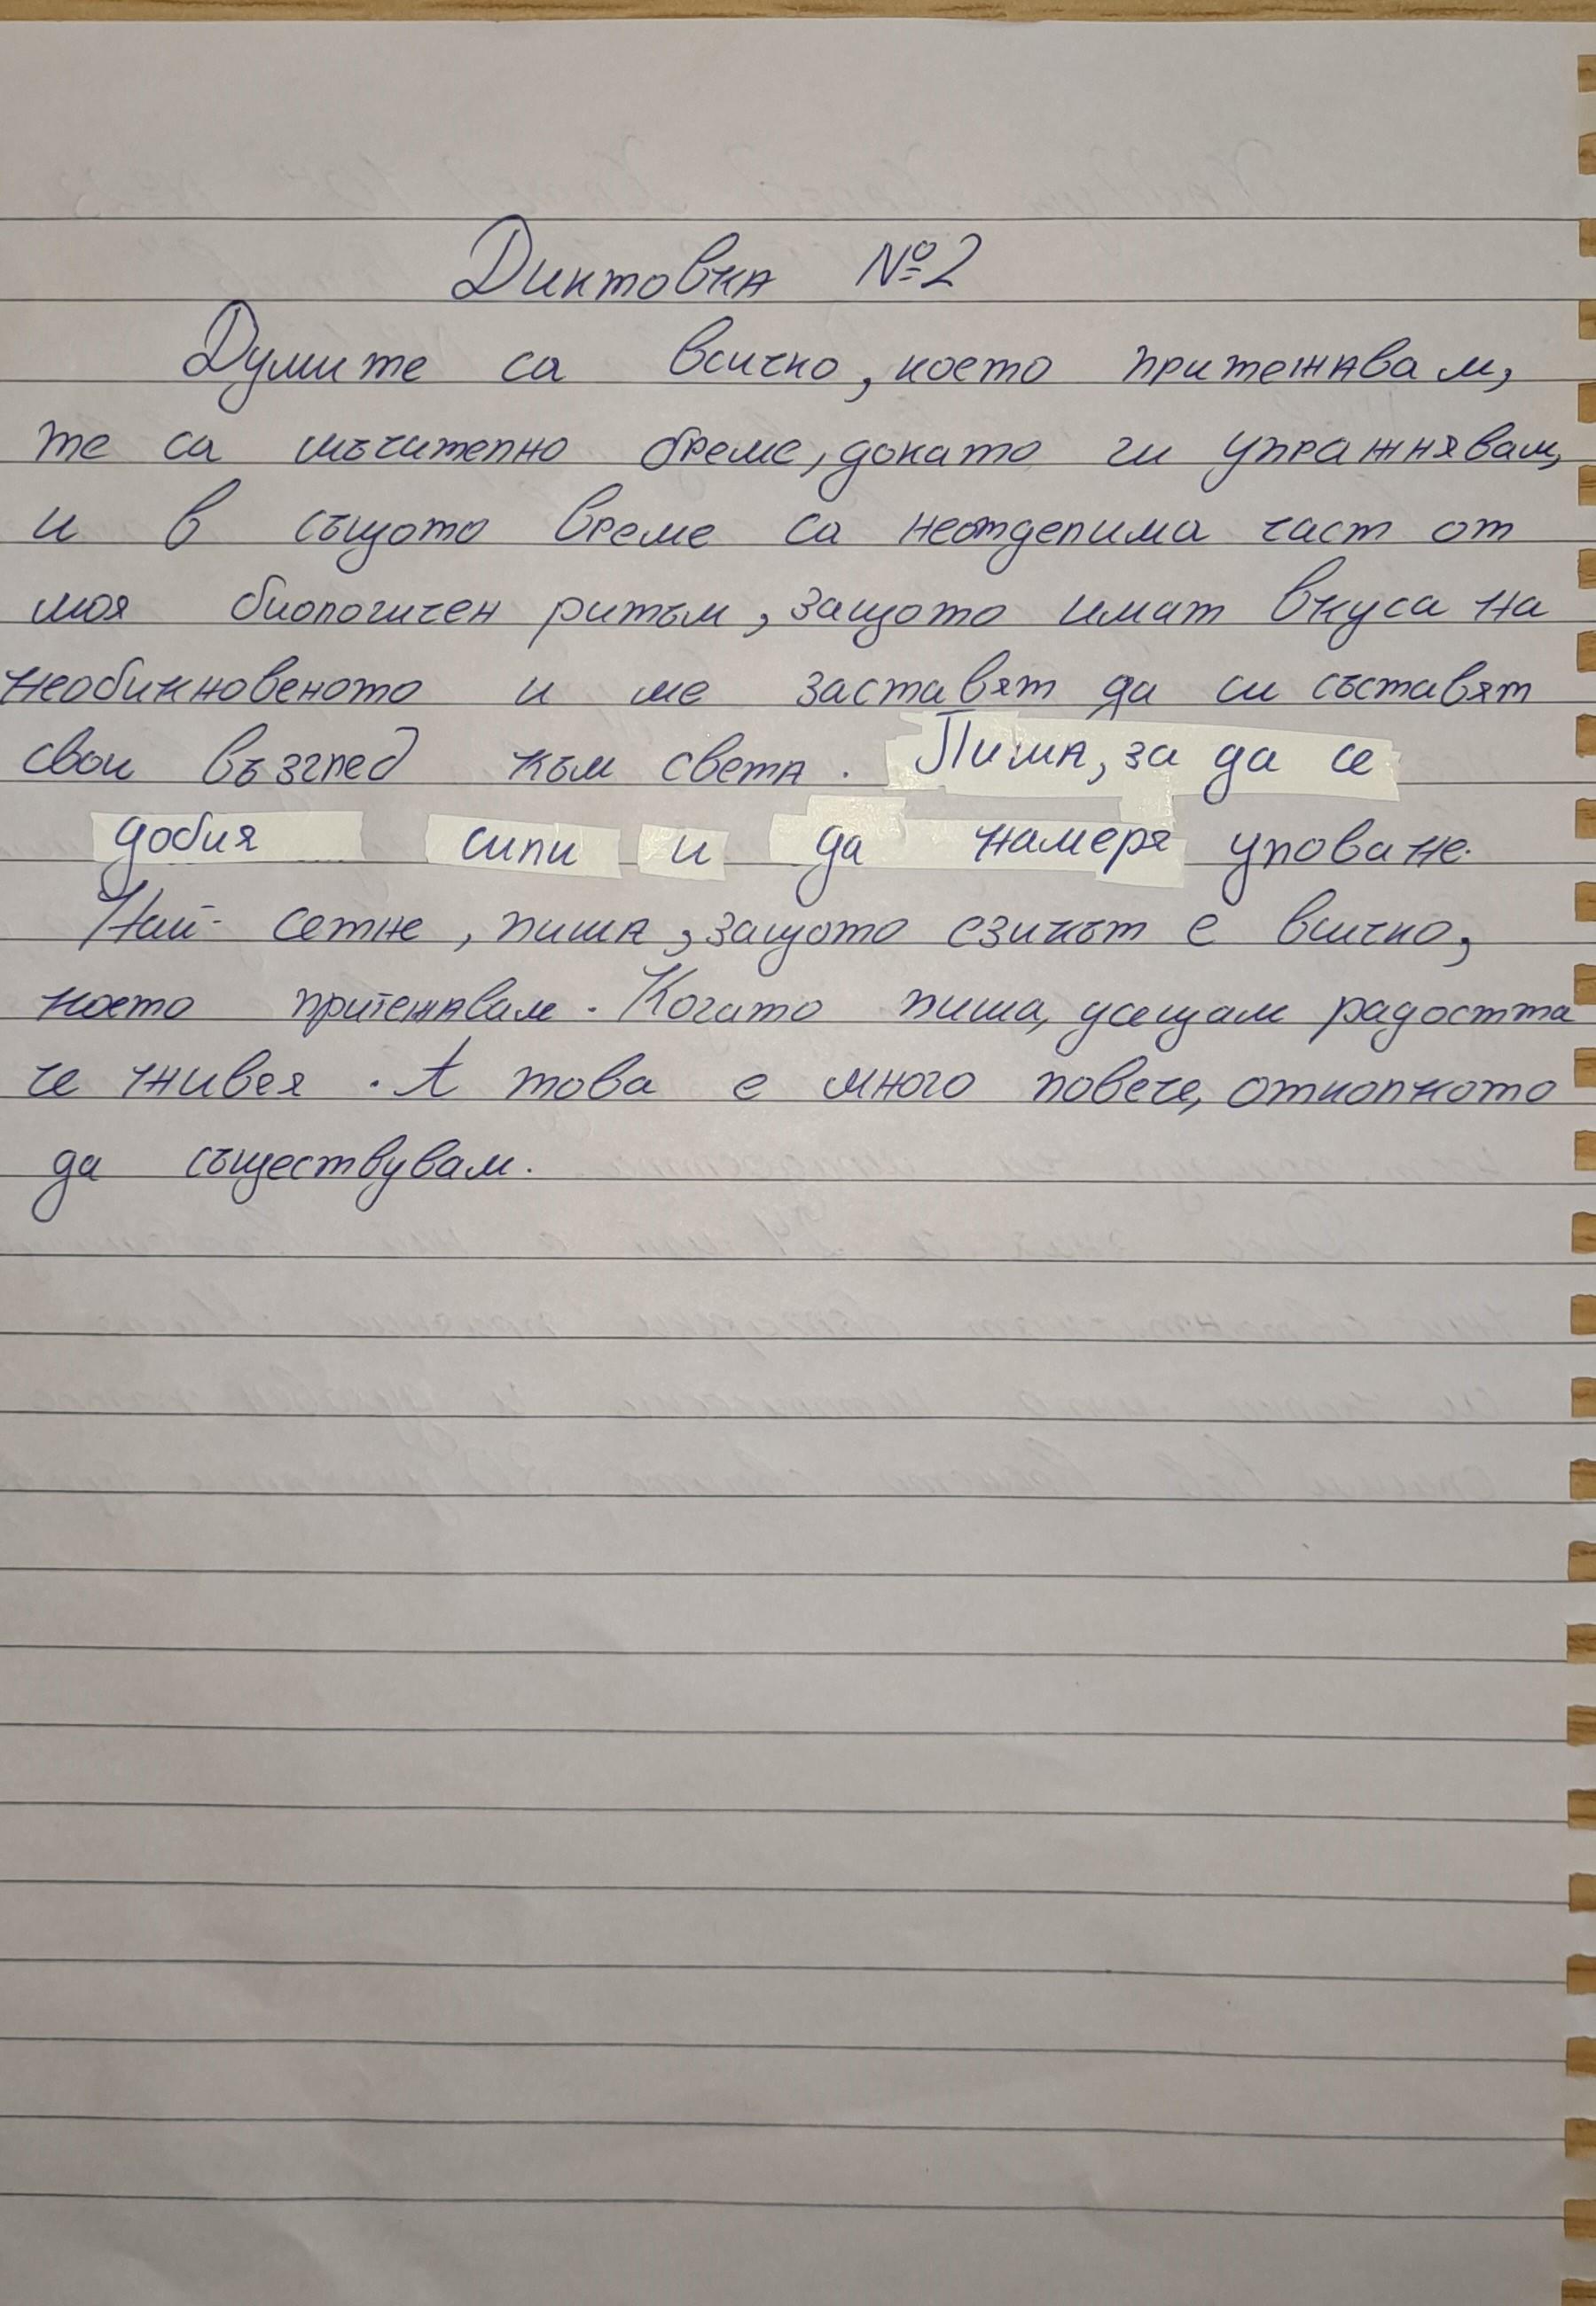 Диктовка №2
Думите са всичко, което притежавам,
те са мъчително бреме, докато ги упражнявам,
и в същото време са неотделима част от
моя биологичен ритъм, защото имат вкуса на
необикновеното и ме заставят да си съставят
свои възглед към света. Пиша, за да се
добия сили и да намеря упование.
Най-сетне, пиша, защото езикът е всичко,
което притежавам. Когато пиша, усещам радостта
че живея. А това е много повече, отколкото
да съществувам.